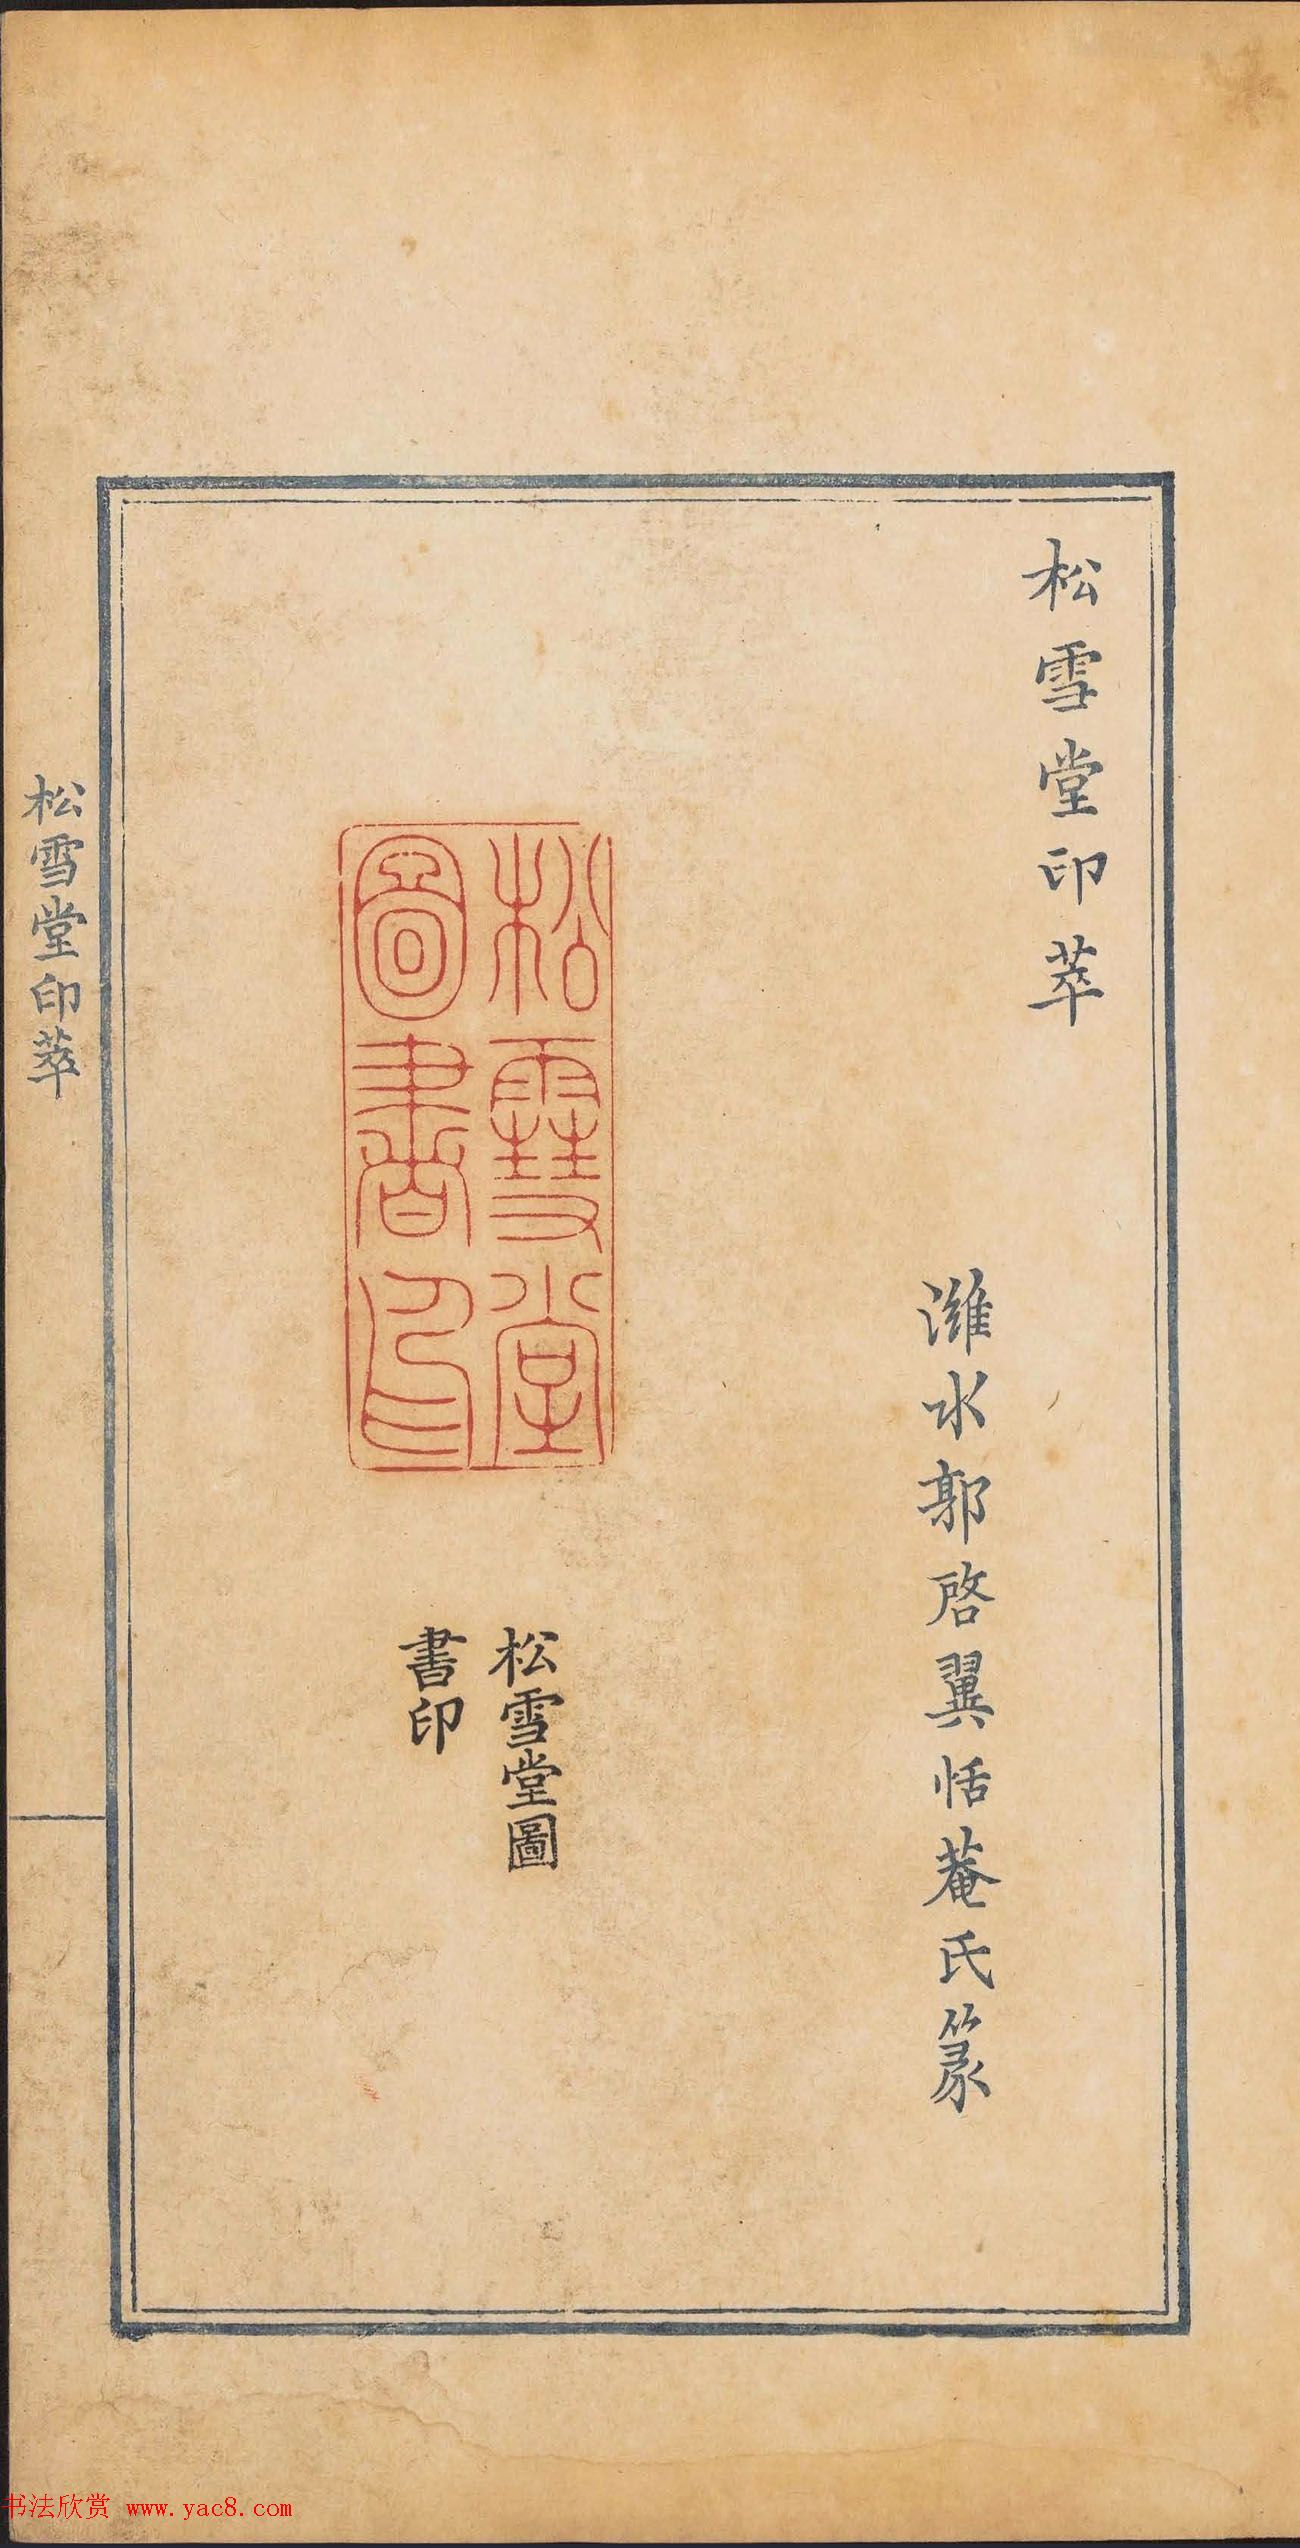 松雪堂印萃
濰水郭啓翼恬菴氏篆
松雪堂
圖書印
松雪堂圖
書印
松雪堂印萃
书法欣赏 www.yac8.com